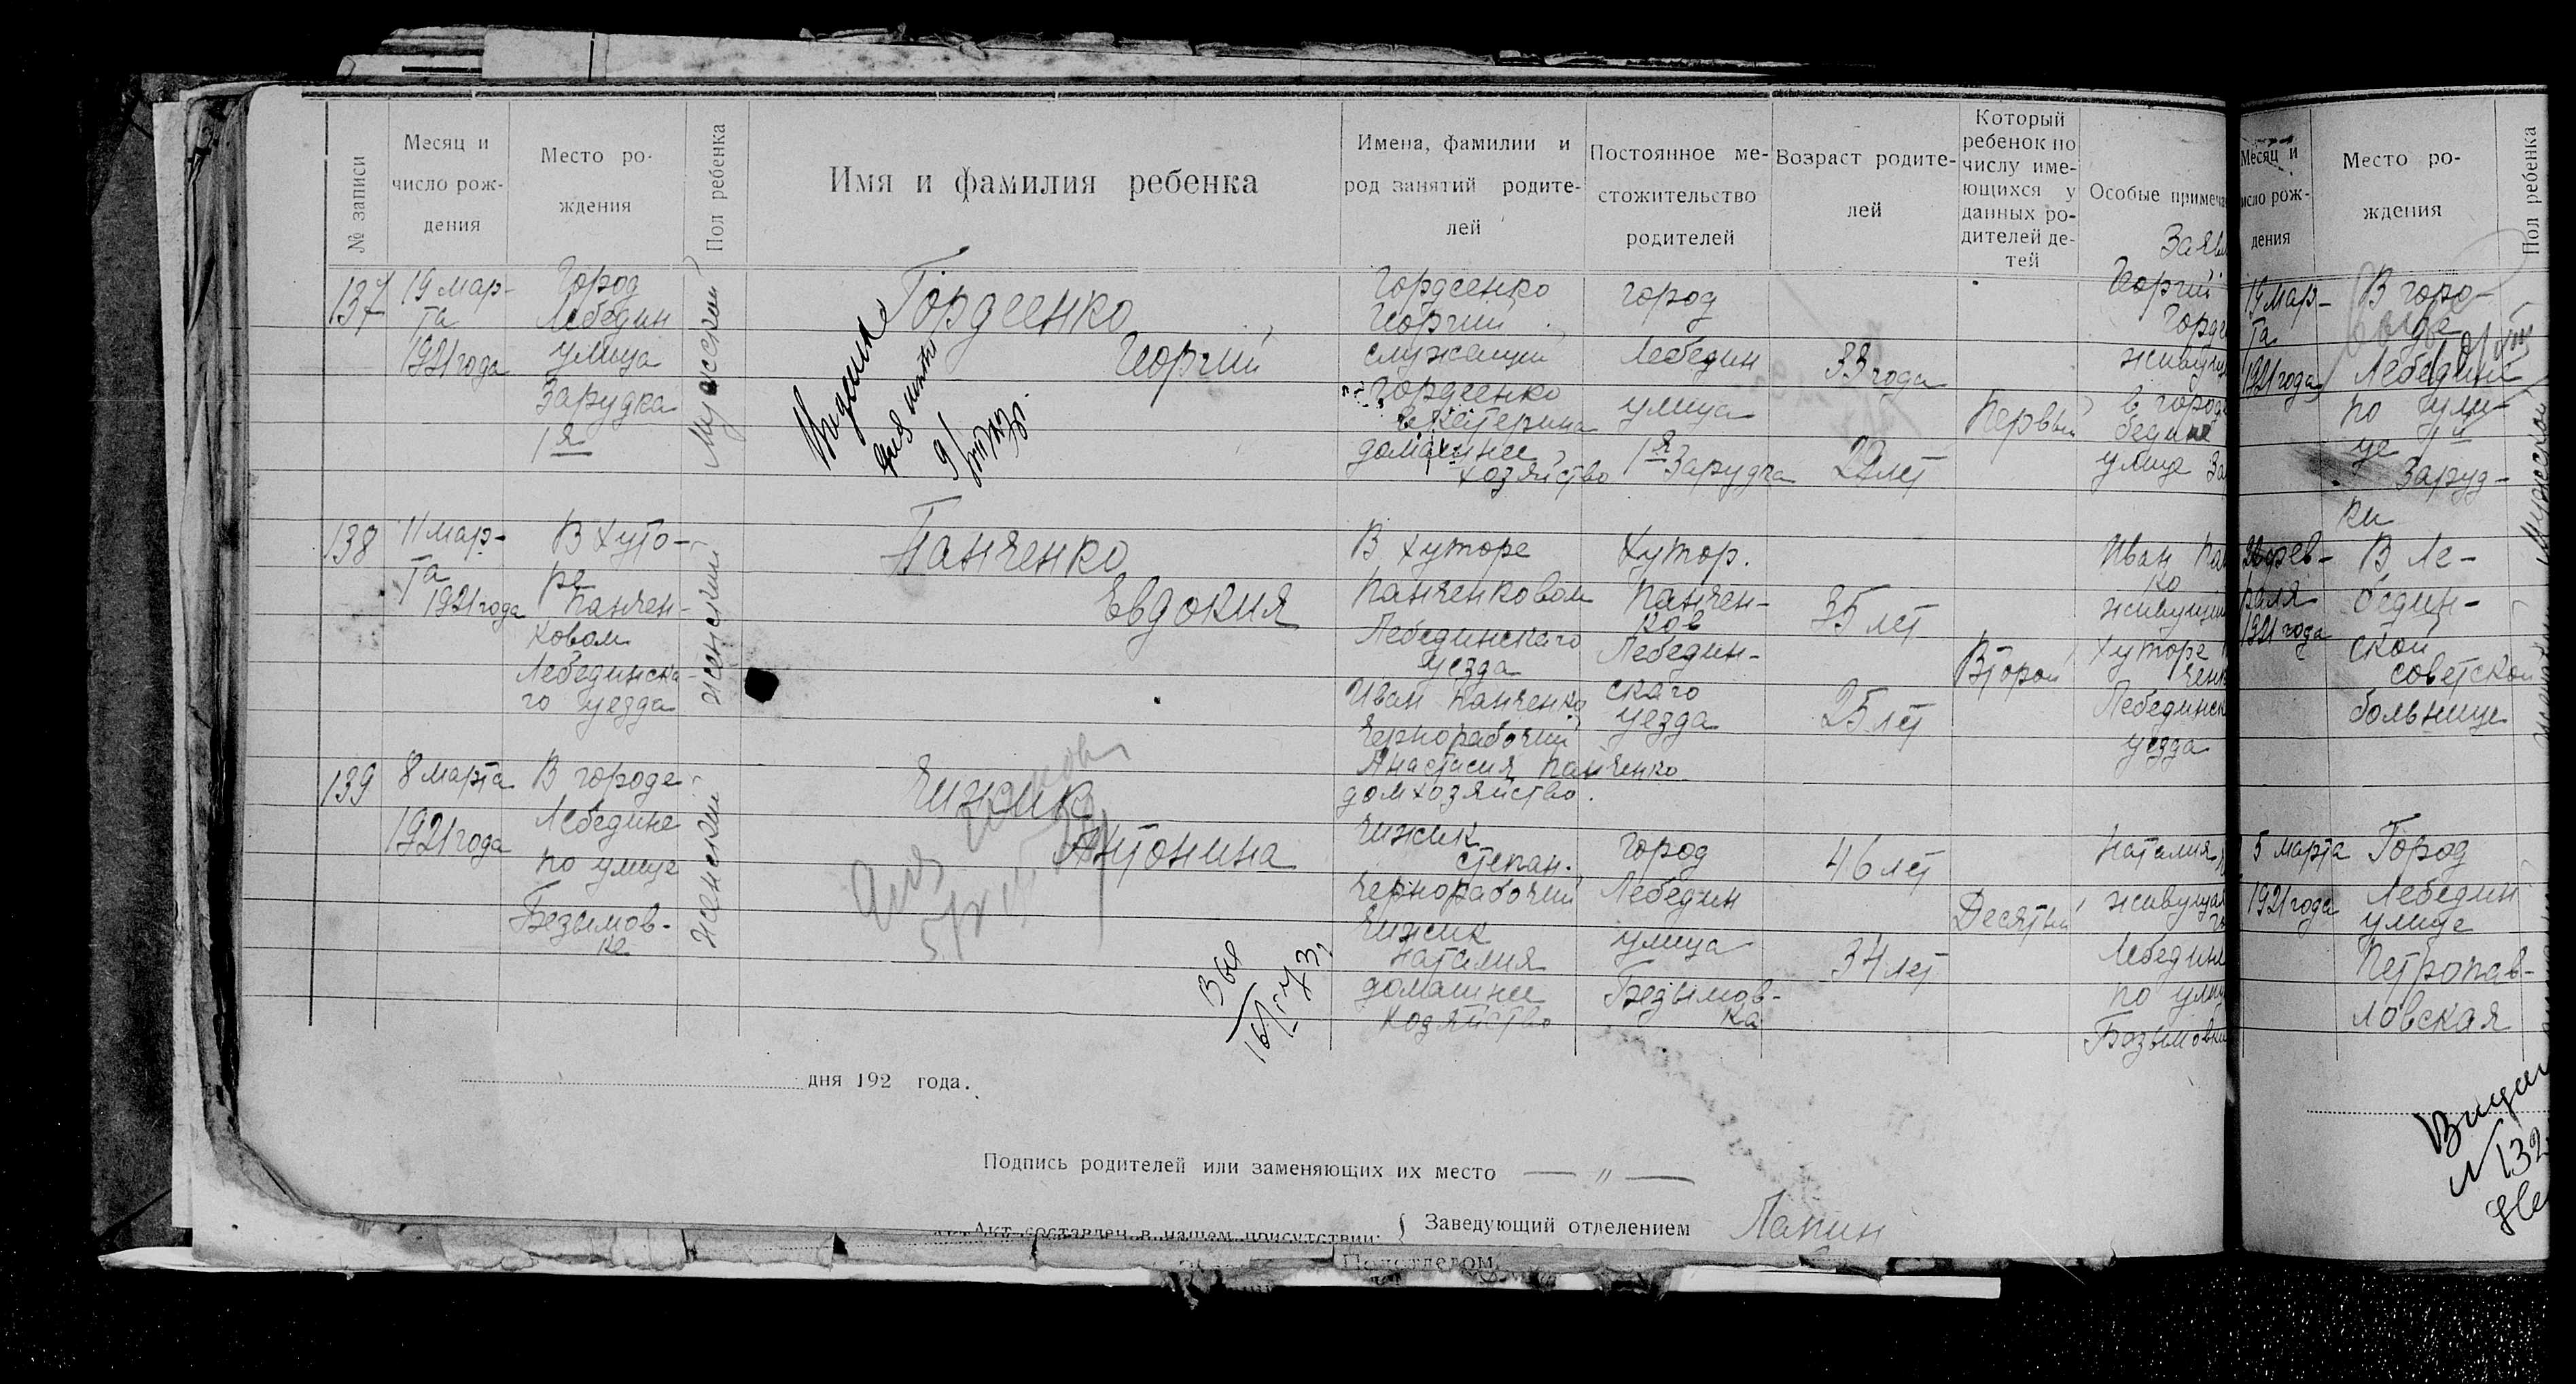 № записи
Месяц и
число рож-
дения
Место ро-
ждения
Пол ребенка
Имя и фамилия ребенка
Имена, фамилии и
род занятий родите-
лей
Постоянное ме-
стожительство
родителей
Возраст родите-
лей
Который
ребенок по
числу име-
ющихся у
данных ро-
дителей де-
тей
Особые примеча
Заяв
137
19 мар-
та
1921 года
Город
Лебедин
улица
Зарудка
1я
Мужской
Гордеенко
Георгий
Гордеенко
Георгий
служащий
Гордеенко
Екатерина
домашнее
хозяйство
город
Лебедин
улица
1я Зарудка
33 года
22 лет
Первый
Георгий
Горде
живущ
в городе
бедине
улице За
138
11 мар-
та
1921 года
В хуто-
ре
Панчен-
ковом
Лебединска-
го уезда
женский
Панченко
Евдокия
В хуторе
Панченковом
Лебединскаго
уезда
Иван Панченко
чернорабочий
Анастасия Панченко
домхозяйство.
Хутор.
Панчен-
ков
Лебедин-
скаго
уезда
35 лет
25 лет
Второй
Иван Пан
ко
живущий
хуторе
ченк
Лебединск
уезда
139
8 марта
1921 года
В городе
Лебедине
по улице
Безымов-
ке
женский
Чижик
Антонина
Чижик
Степан.
чернорабочий
Чижик
Наталия
домашнее
хозяйство
город
Лебедин
улица
Безымов-
ка
46 лет
34 лет
Десятый
Наталия
живущая
Лебедин
по ули
Безымовки
дня 192 года.
Подпись родителей или заменяющих их место — " —
Акт составлен в нашем присутствии:
Заведующий отделением Лапин
Подотделом
Месяц и
исло рож-
дения
Место ро-
ждения
Пол ребенка
19 мар-
та
1921 года
В горо-
де
Лебедине
по ули-
це 1й
Заруд-
ки
Мужской
22 фев-
раля
1921 года
В Ле-
бедин-
ской
советской
больнице
5 марта
1921 года
Город
Лебедин
улице
Петропав-
ловская